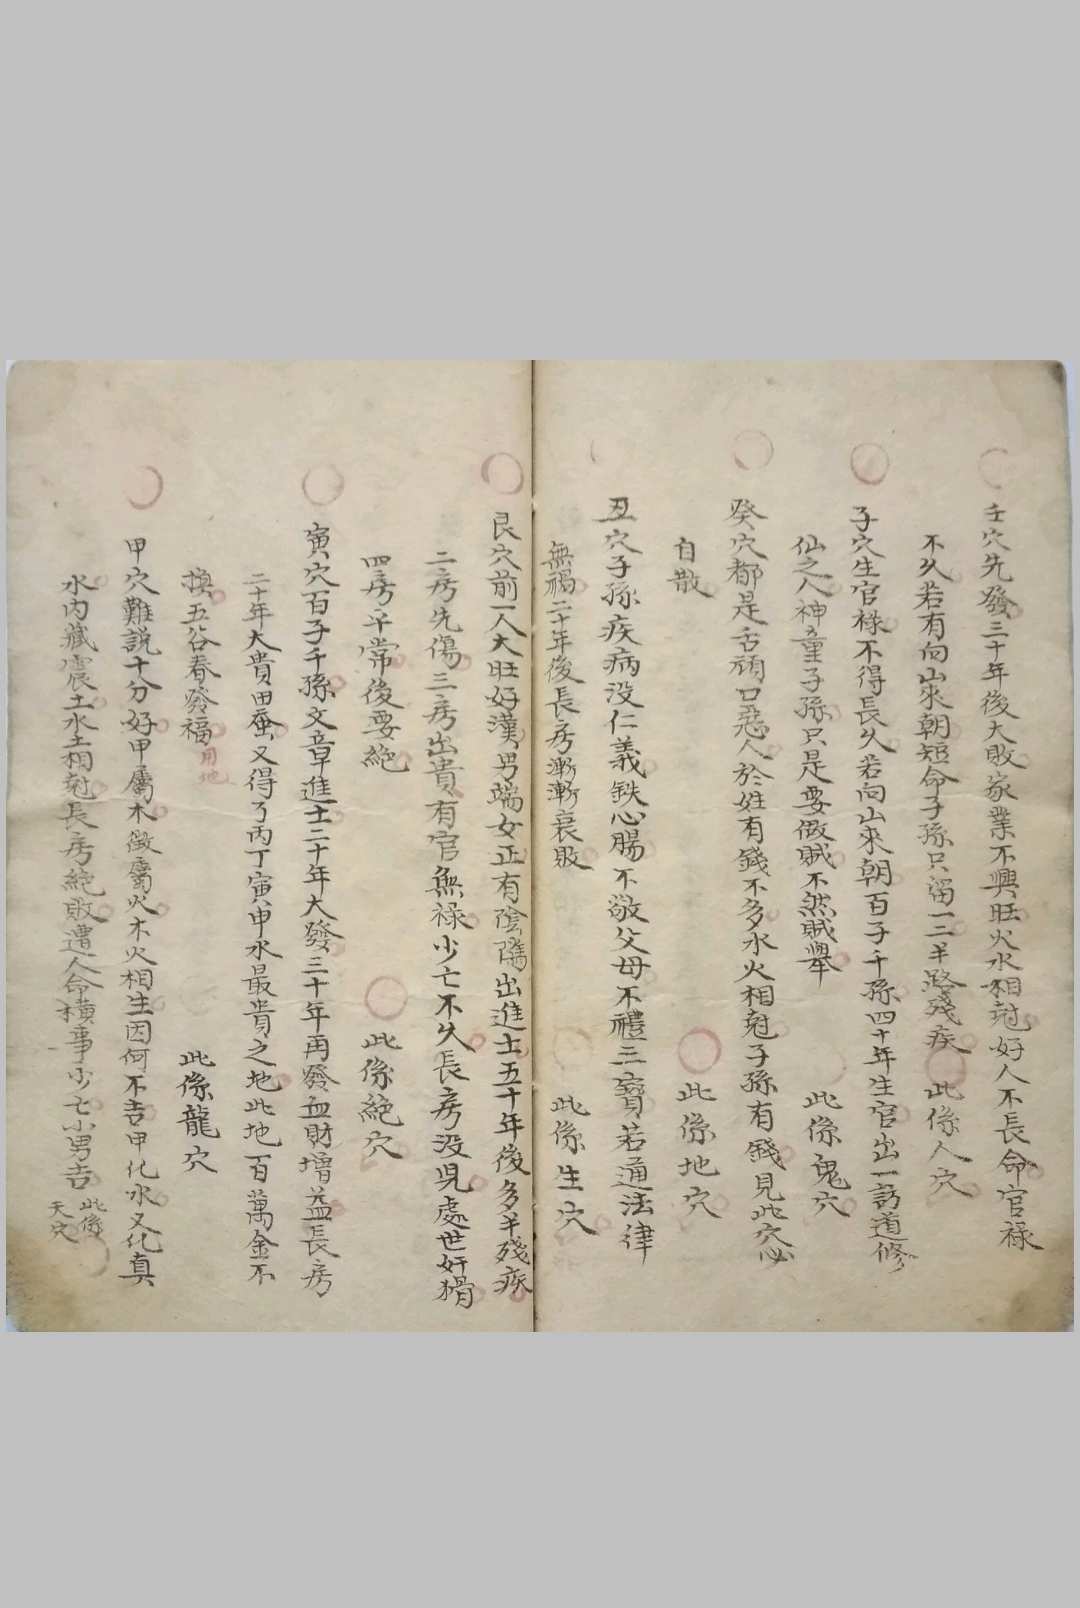 壬穴先發三十年後大敗家業不興旺火水相尅好人不長命官祿
不久若有向山來朝短命子孫只留一二半路殘疾 此係人穴
子穴生官祿不得長久若向山來朝百子千孫四十年生官出一訪道修
仙之人神童子孫只是要做賊不然賊舉 此係鬼穴
癸穴都是舌頑口惡人於姓有錢不多水火相尅子孫有錢見此穴必
自散 此係地穴
丑穴子孫疾病没仁義鉄心腸不敬父母不禮三寳若通法律
無禍二十年後長房漸漸衰敗 此係生穴
艮穴前一人大旺好漢男端女正有陰隲出進士五十年後多半殘疾
二房先傷三房出貴有官無祿少亡不久長房没児處世奸猾
四房平常後要絶 此係絶穴
寅穴百子千孫文章進士二十年大發三十年再發血財增益長房
二十年大貴田蚕又得了丙丁寅申水最貴之地此地一百萬金不
換五谷春發福用地 此係龍穴
甲穴難説十分好甲屬木徵屬火木火相生因何不吉甲化水又化真
水内藏震土水土相尅長房絶敗遭人命横事少亡小男吉 此係
天穴